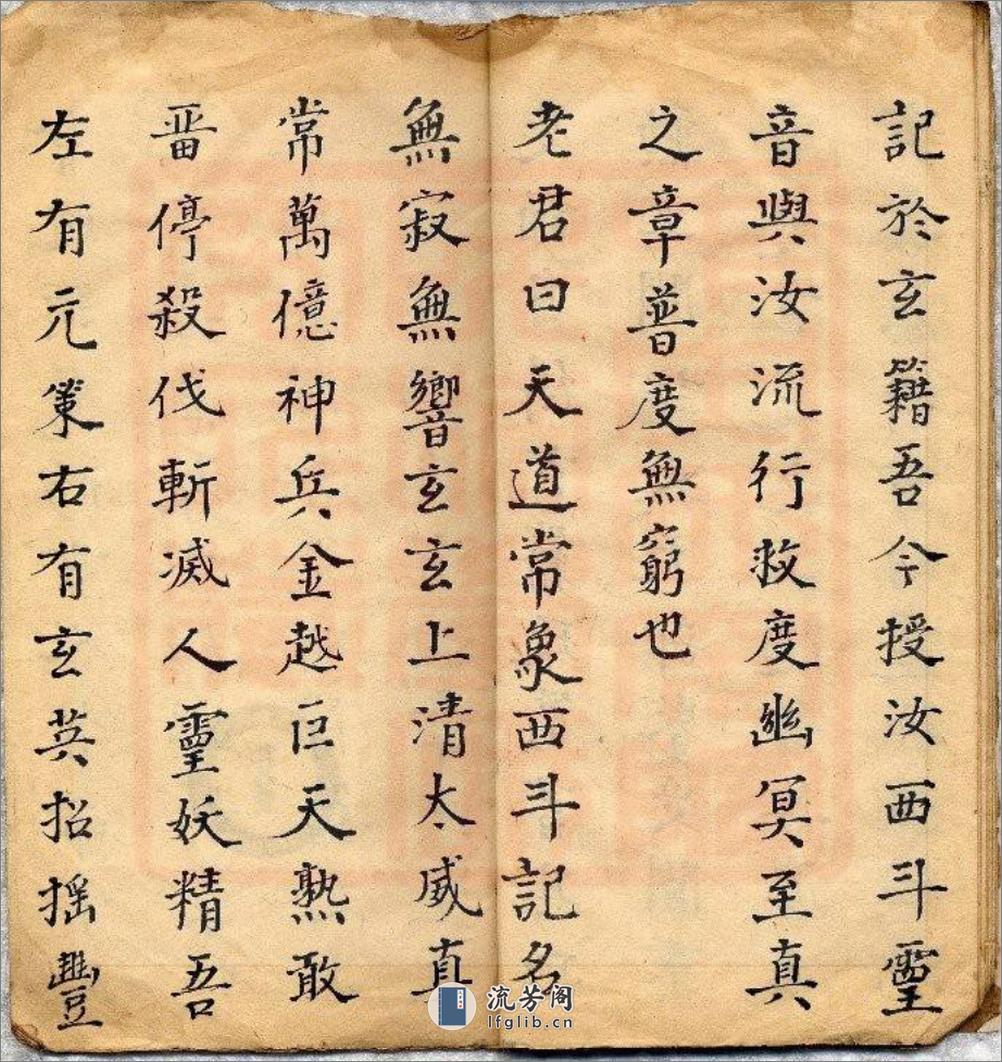 記於玄籍吾今授汝西斗霊
音與汝流行救度幽冥至真
之章普度無窮也
老君曰天道常象西斗記名
無寂無響玄玄上清太威真
常萬億神兵金越巨天熟敢
畱停殺伐斬滅人霊妖精吾
左有元策右有玄英招摇豐
流芳阁
lfglib.cn